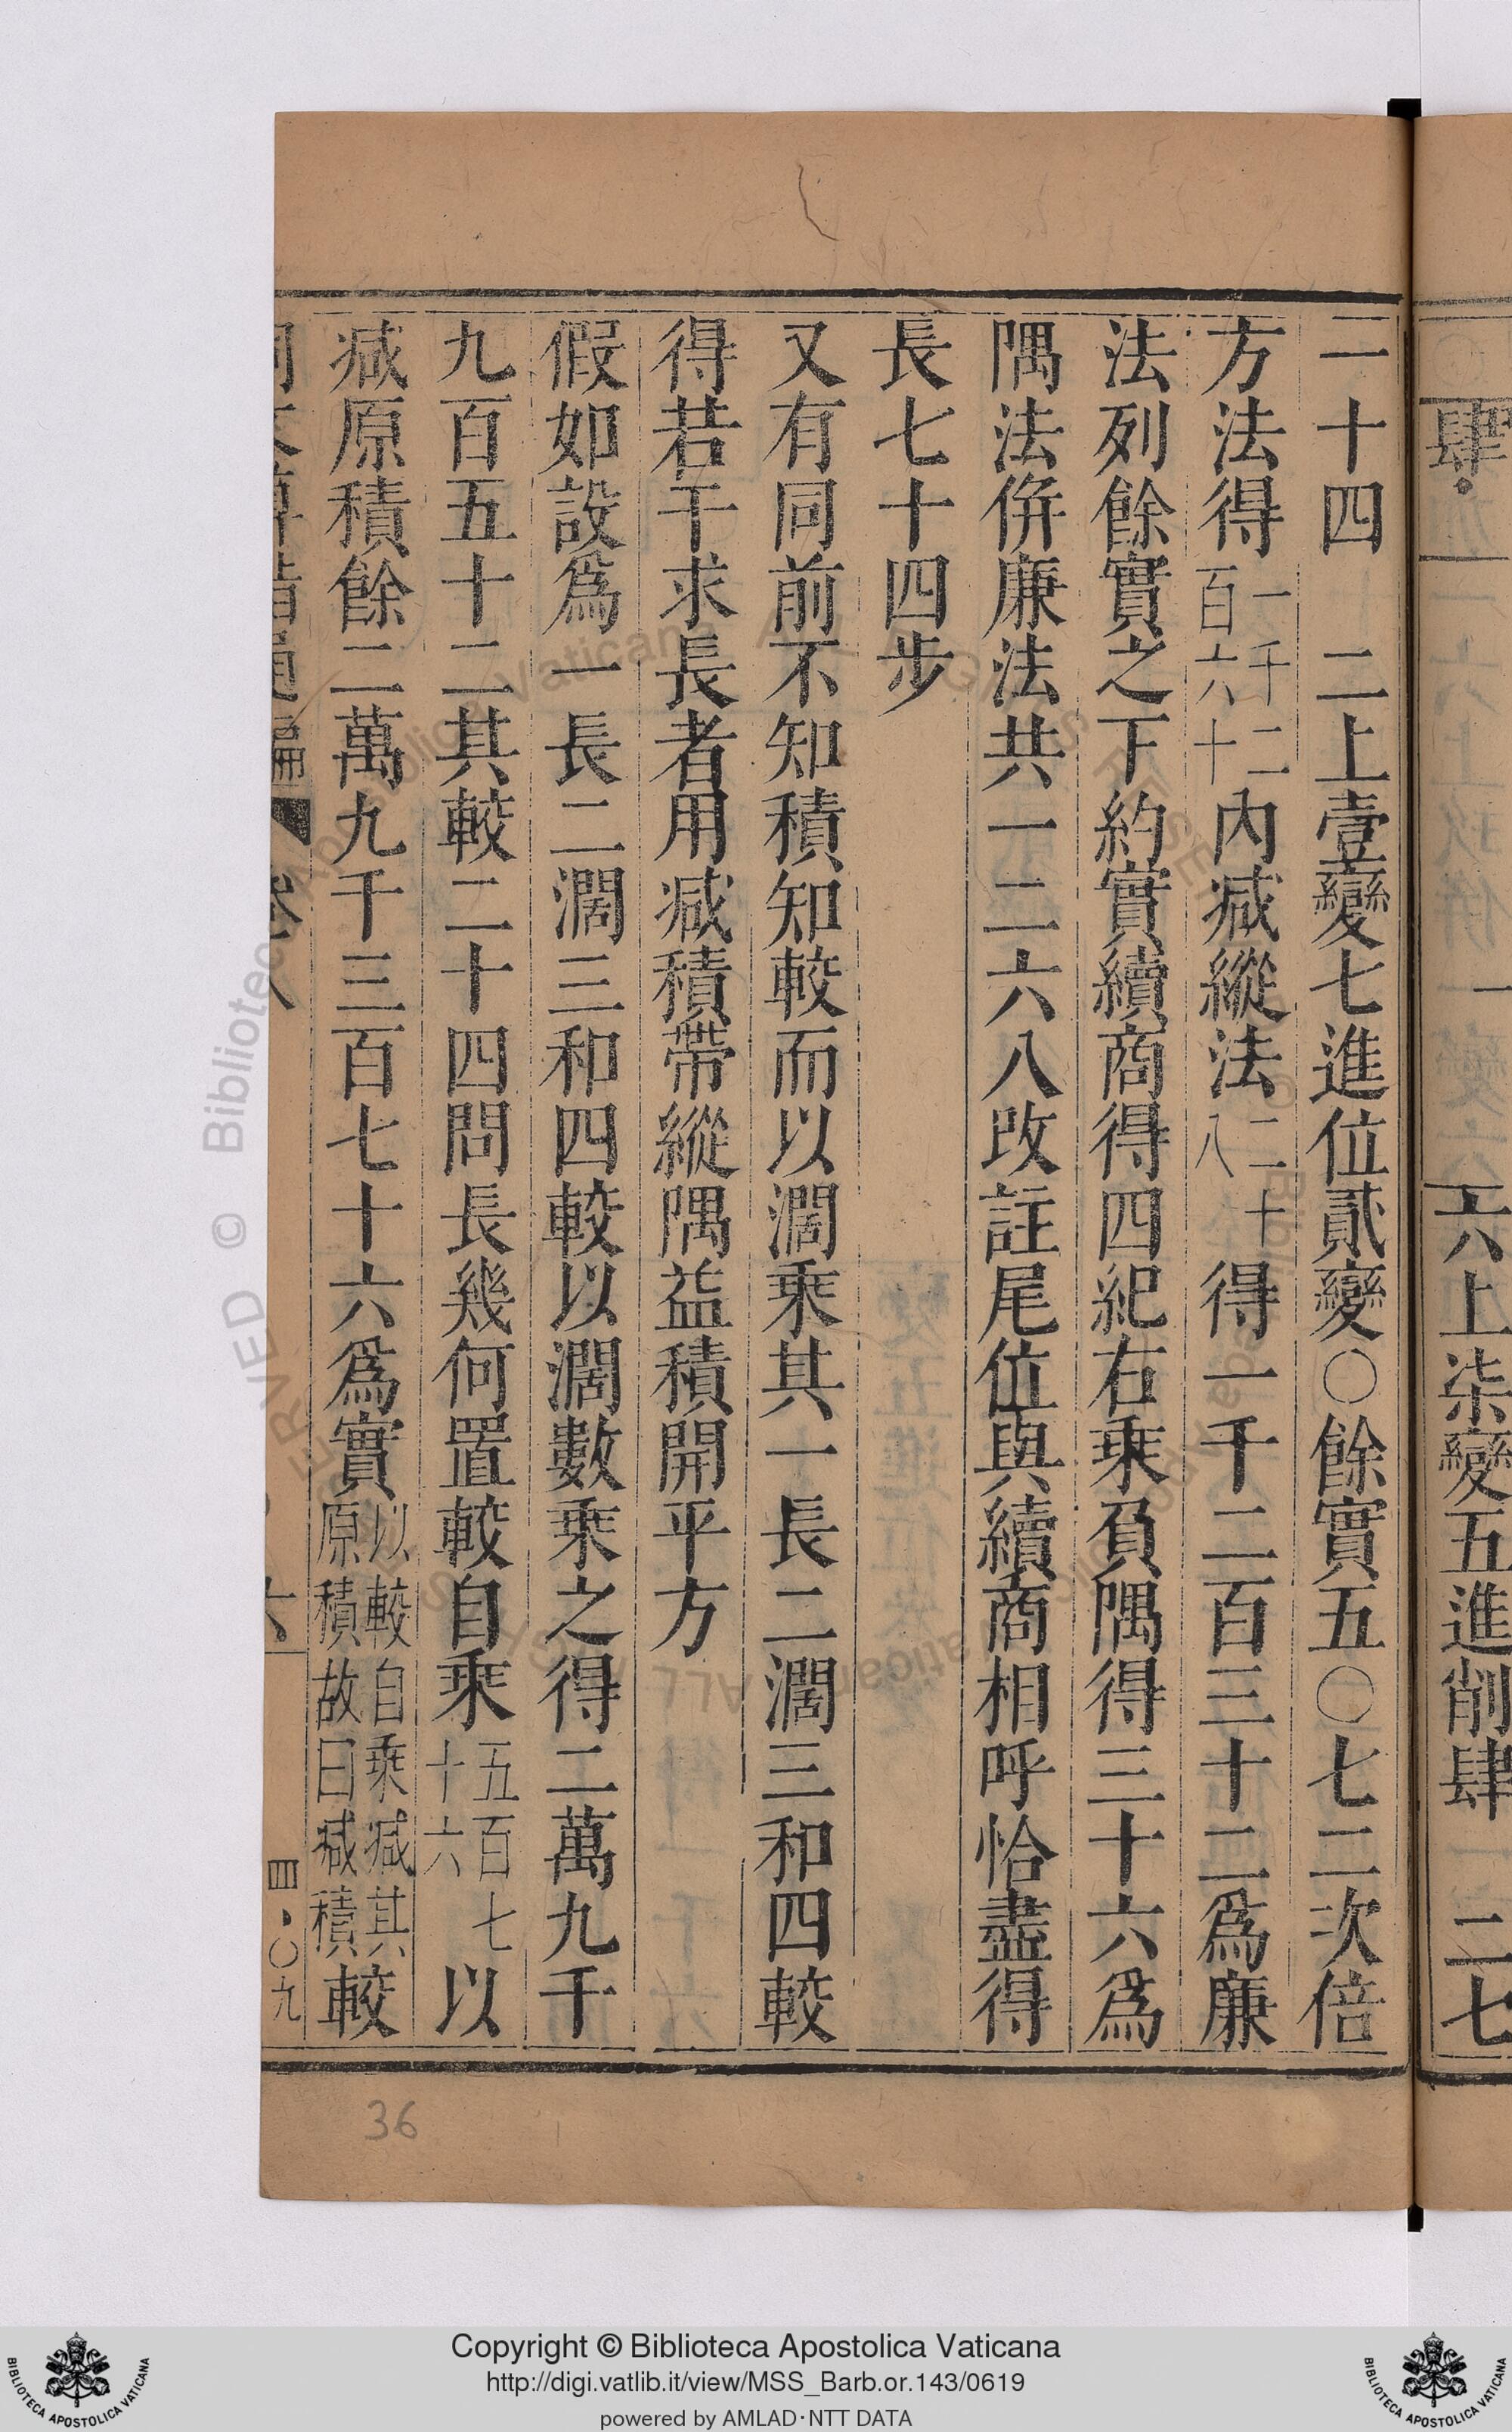 肆
一
六上柒變五進削肆 二七
二十四 二上壹變七進位貳變〇餘實五〇七二次倍
方法得一千二百六十內減縱法二十八得一千二百三十二爲廉
法列餘實之下約實續商得四紀右乘負隅得三十六爲
隅法併廉法共一二六八改註尾位與續商相呼恰盡得
長七十四步
又有同前不知積知較而以濶乘其一長二濶三和四較
得若干求長者用減積帶縱隅益積開平方
假如設爲一長二濶三和四較以濶數乘之得二萬九千
九百五十二其較二十四問長幾何置較自乘五百七十六以
減原積餘二萬九千三百七十六爲實以較自乘減其原積故曰減積較
同文算指通編 卷八 六 四〇九
36
Copyright © Biblioteca Apostolica Vaticana
http://digi.vatlib.it/view/MSS_Barb.or.143/0619
powered by AMLAD·NTT DATA
BIBLIOTECA APOSTOLICA VATICANA
BIBLIOTECA APOSTOLICA VATICANA